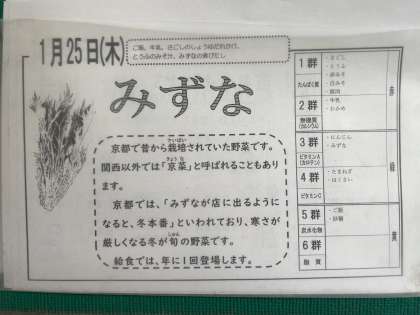 1月25日(木)
ご飯、牛乳、さごしのしょうゆだれかけ、
とうふのみそ汁、みずなの煮びたし
みずな
京都で昔から栽培されていた野菜です。
関西以外では「京菜」と呼ばれることもあり
ます。
京都では、「みずなが店に出るように
なると、冬本番」といわれており、寒さが
厳しくなる冬が旬の野菜です。
給食では、年に1回登場します。
1群
たんぱく質
・さごし
・とうふ
2群
無機質
(カルシウム)
・牛乳
・わかめ
3群
ビタミンA
(カロテン)
・にんじん
・みずな
4群
ビタミンC
・たまねぎ
・はくさい
5群
炭水化物
・ご飯
・砂糖
6群
脂質
赤
緑
黄